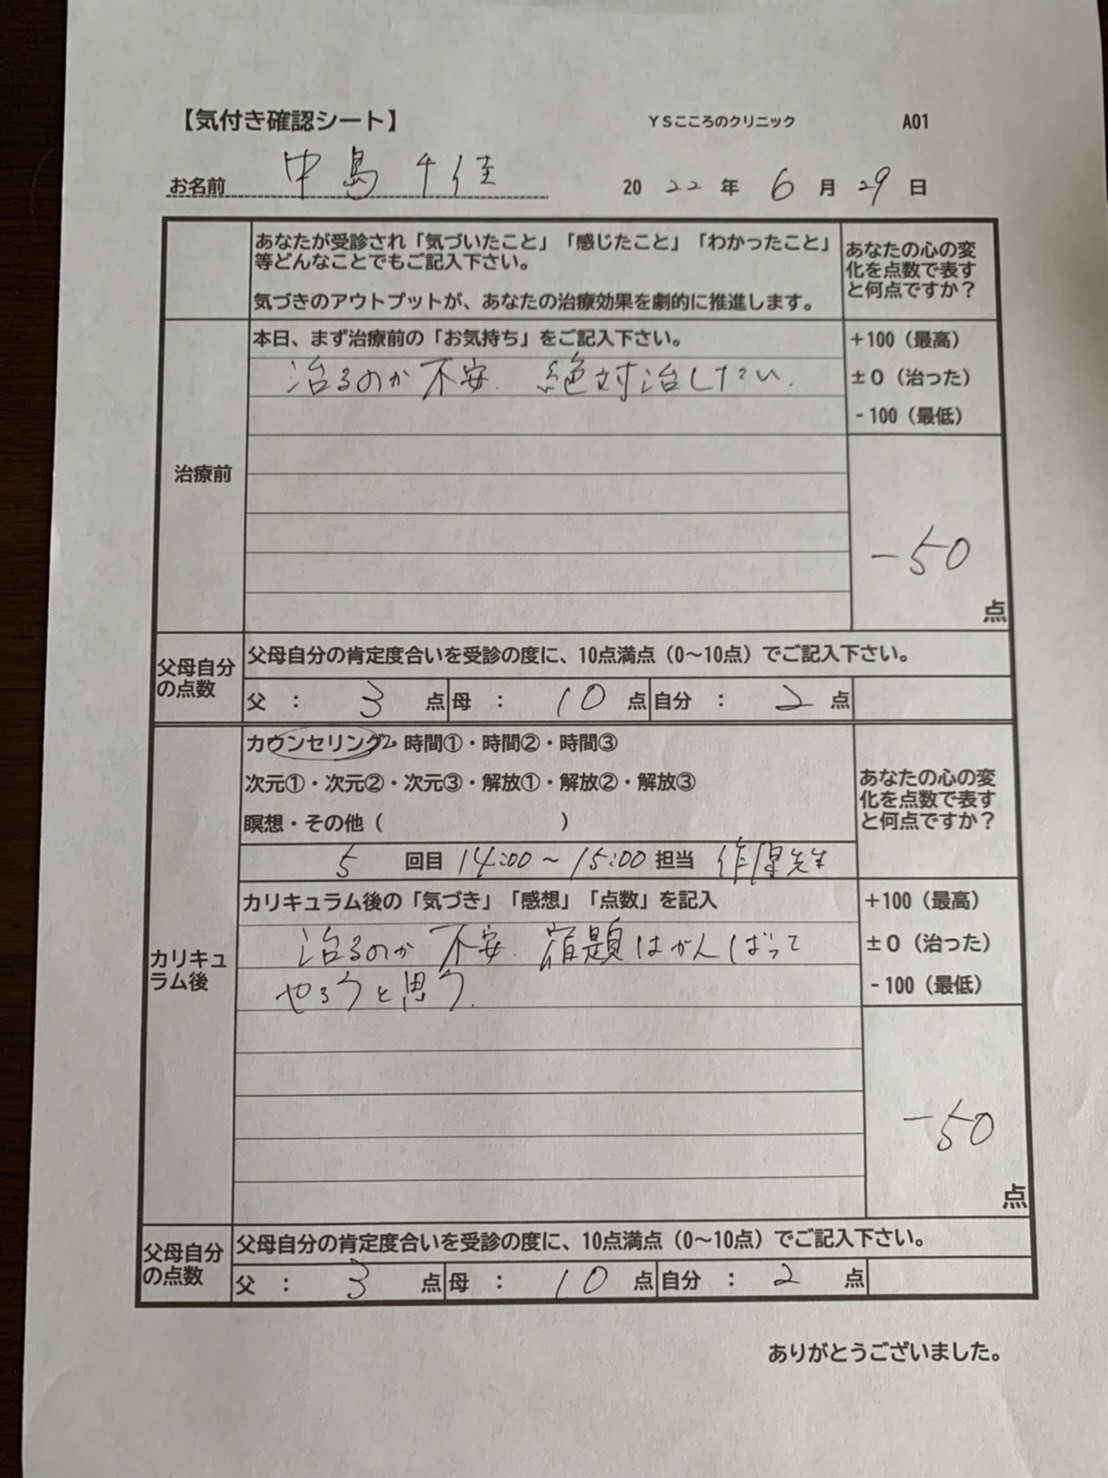 【気付き確認シート】 YSこころのクリニック A01
お名前 中島千佳 2022年6月29日
あなたが受診され「気づいたこと」「感じたこと」「わかったこと」
等どんなことでもご記入下さい。
気づきのアウトプットが、あなたの治療効果を劇的に推進します。
あなたの心の変
化を点数で表す
と何点ですか？
治療前
本日、まず治療前の「お気持ち」をご記入下さい。
治るのか不安。絶対治したい。
+100（最高）
±0（治った）
-100（最低）
-50
点
父母自分
の点数
父母自分の肯定度合いを受診の度に、10点満点（0～10点）でご記入下さい。
父：3点 母：10点 自分：2点
カウンセリング・時間①・時間②・時間③
次元①・次元②・次元③・解放①・解放②・解放③
瞑想・その他（ ）
あなたの心の変
化を点数で表す
と何点ですか？
5回目 14:00～15:00 担当 先生
カリキュ
ラム後
カリキュラム後の「気づき」「感想」「点数」を記入
治るのか不安。宿題はがんばって
やろうと思う。
+100（最高）
±0（治った）
-100（最低）
-50
点
父母自分
の点数
父母自分の肯定度合いを受診の度に、10点満点（0～10点）でご記入下さい。
父：3点 母：10点 自分：2点
ありがとうございました。